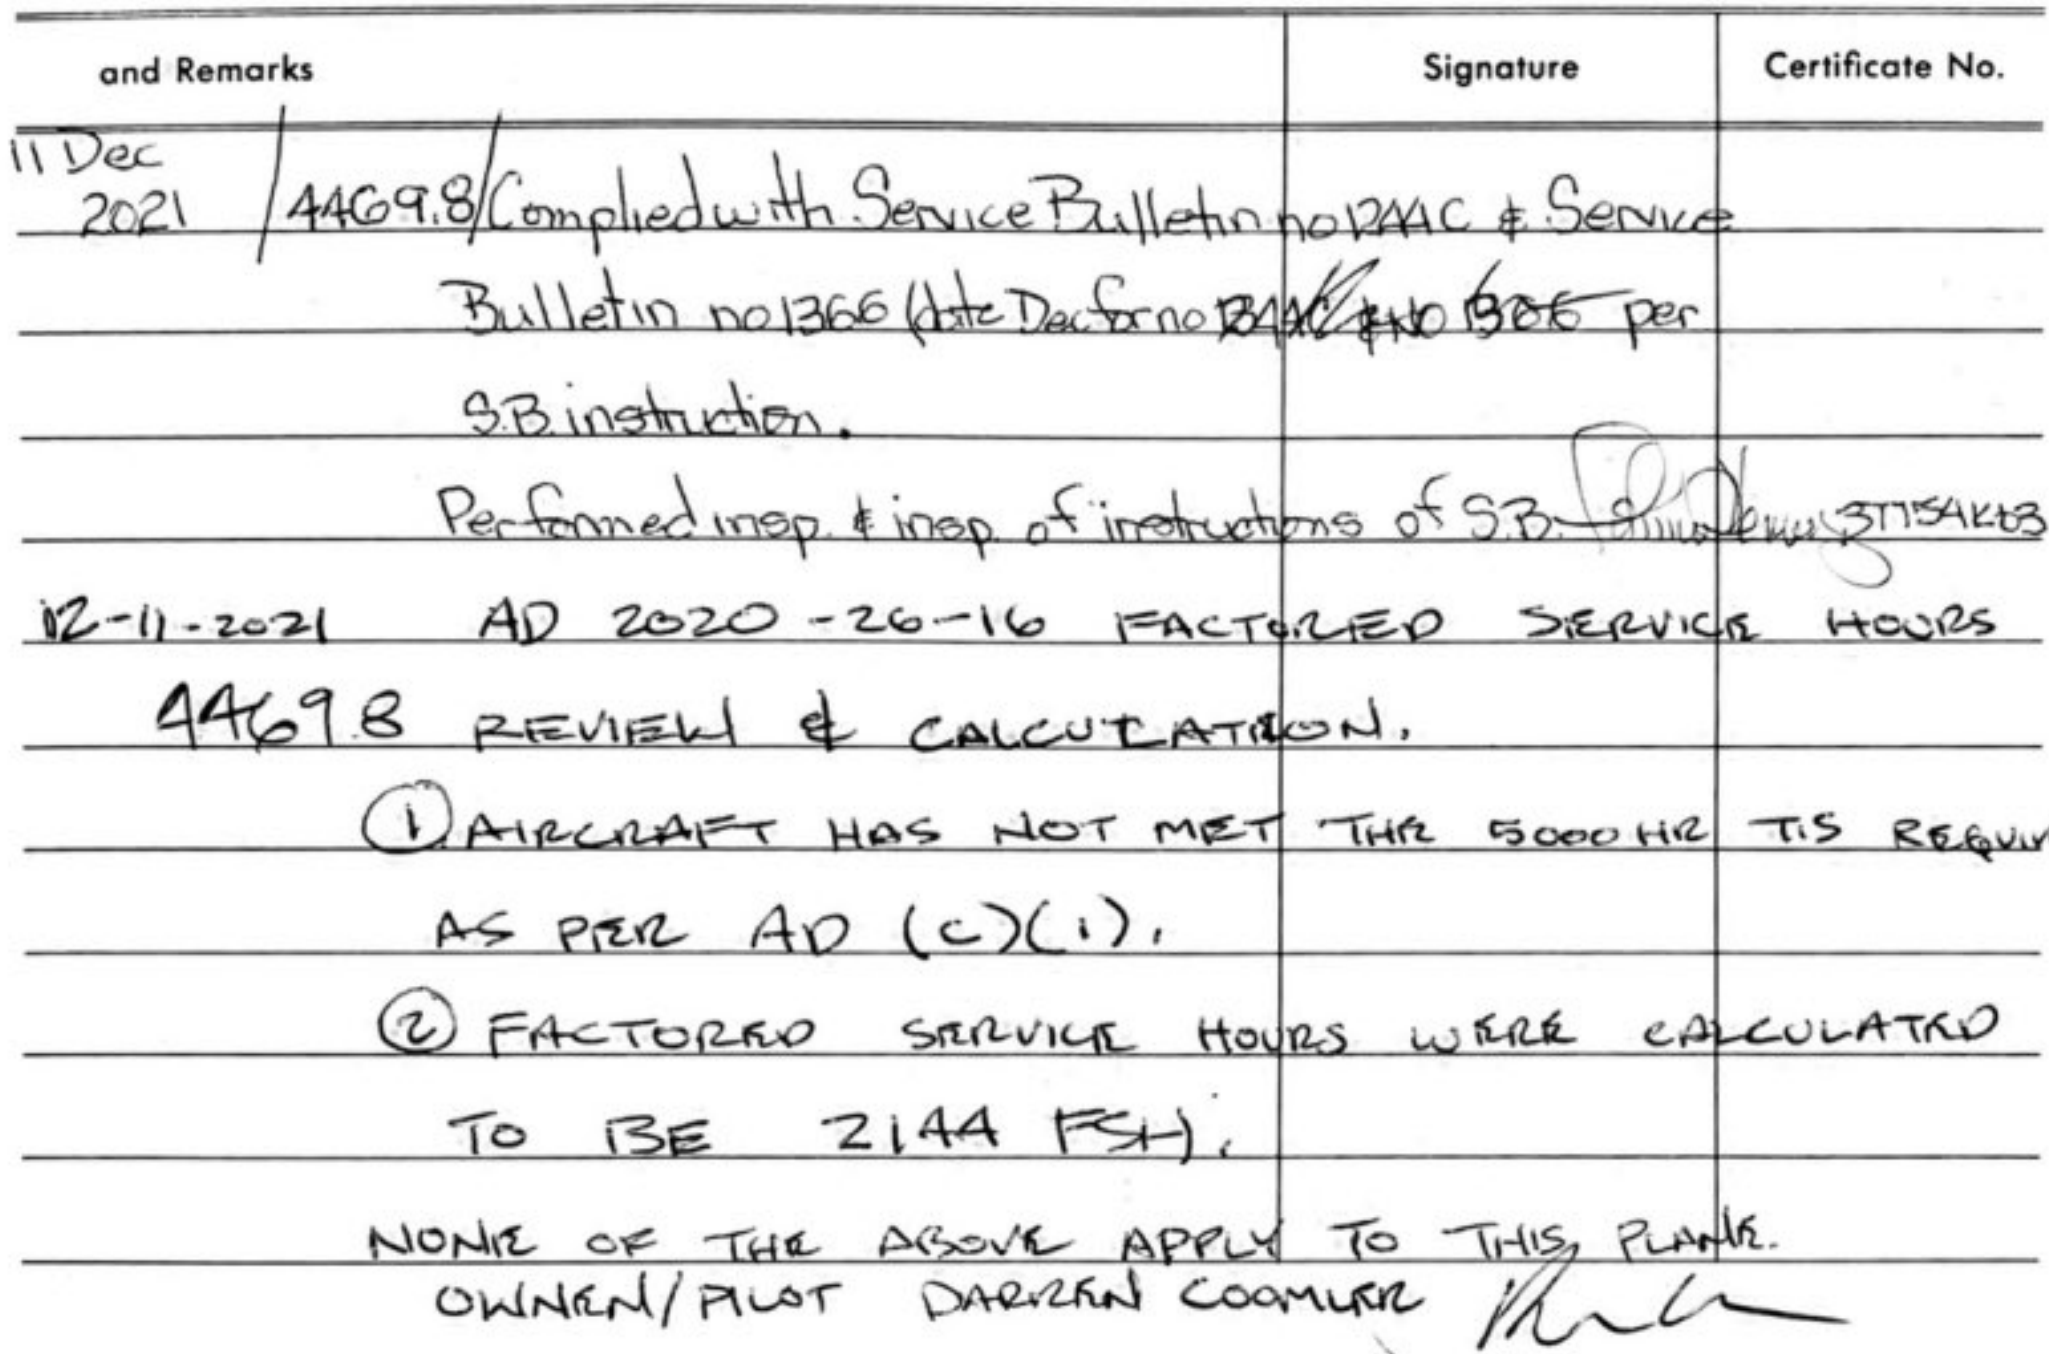 and Remarks Signature Certificate No.
11 Dec
2021 / 4469.8 / Complied with Service Bulletin no 1244C & Service
Bulletin no 1366 (date Dec for no per
S.B. instruction.
Performed insp. & insp. of instructions of S.B.
12-11-2021 AD 2020-26-16 FACTORED SERVICE HOURS
4469.8 REVIEW & CALCULATION.
① AIRCRAFT HAS NOT MET THE 5000 HR TIS REQUIR
AS PER AD (c)(1).
② FACTORED SERVICE HOURS WERE CALCULATED
TO BE 2144 FSH.
NONE OF THE ABOVE APPLY TO THIS PLANE.
OWNER/PILOT DARREN COOMLER